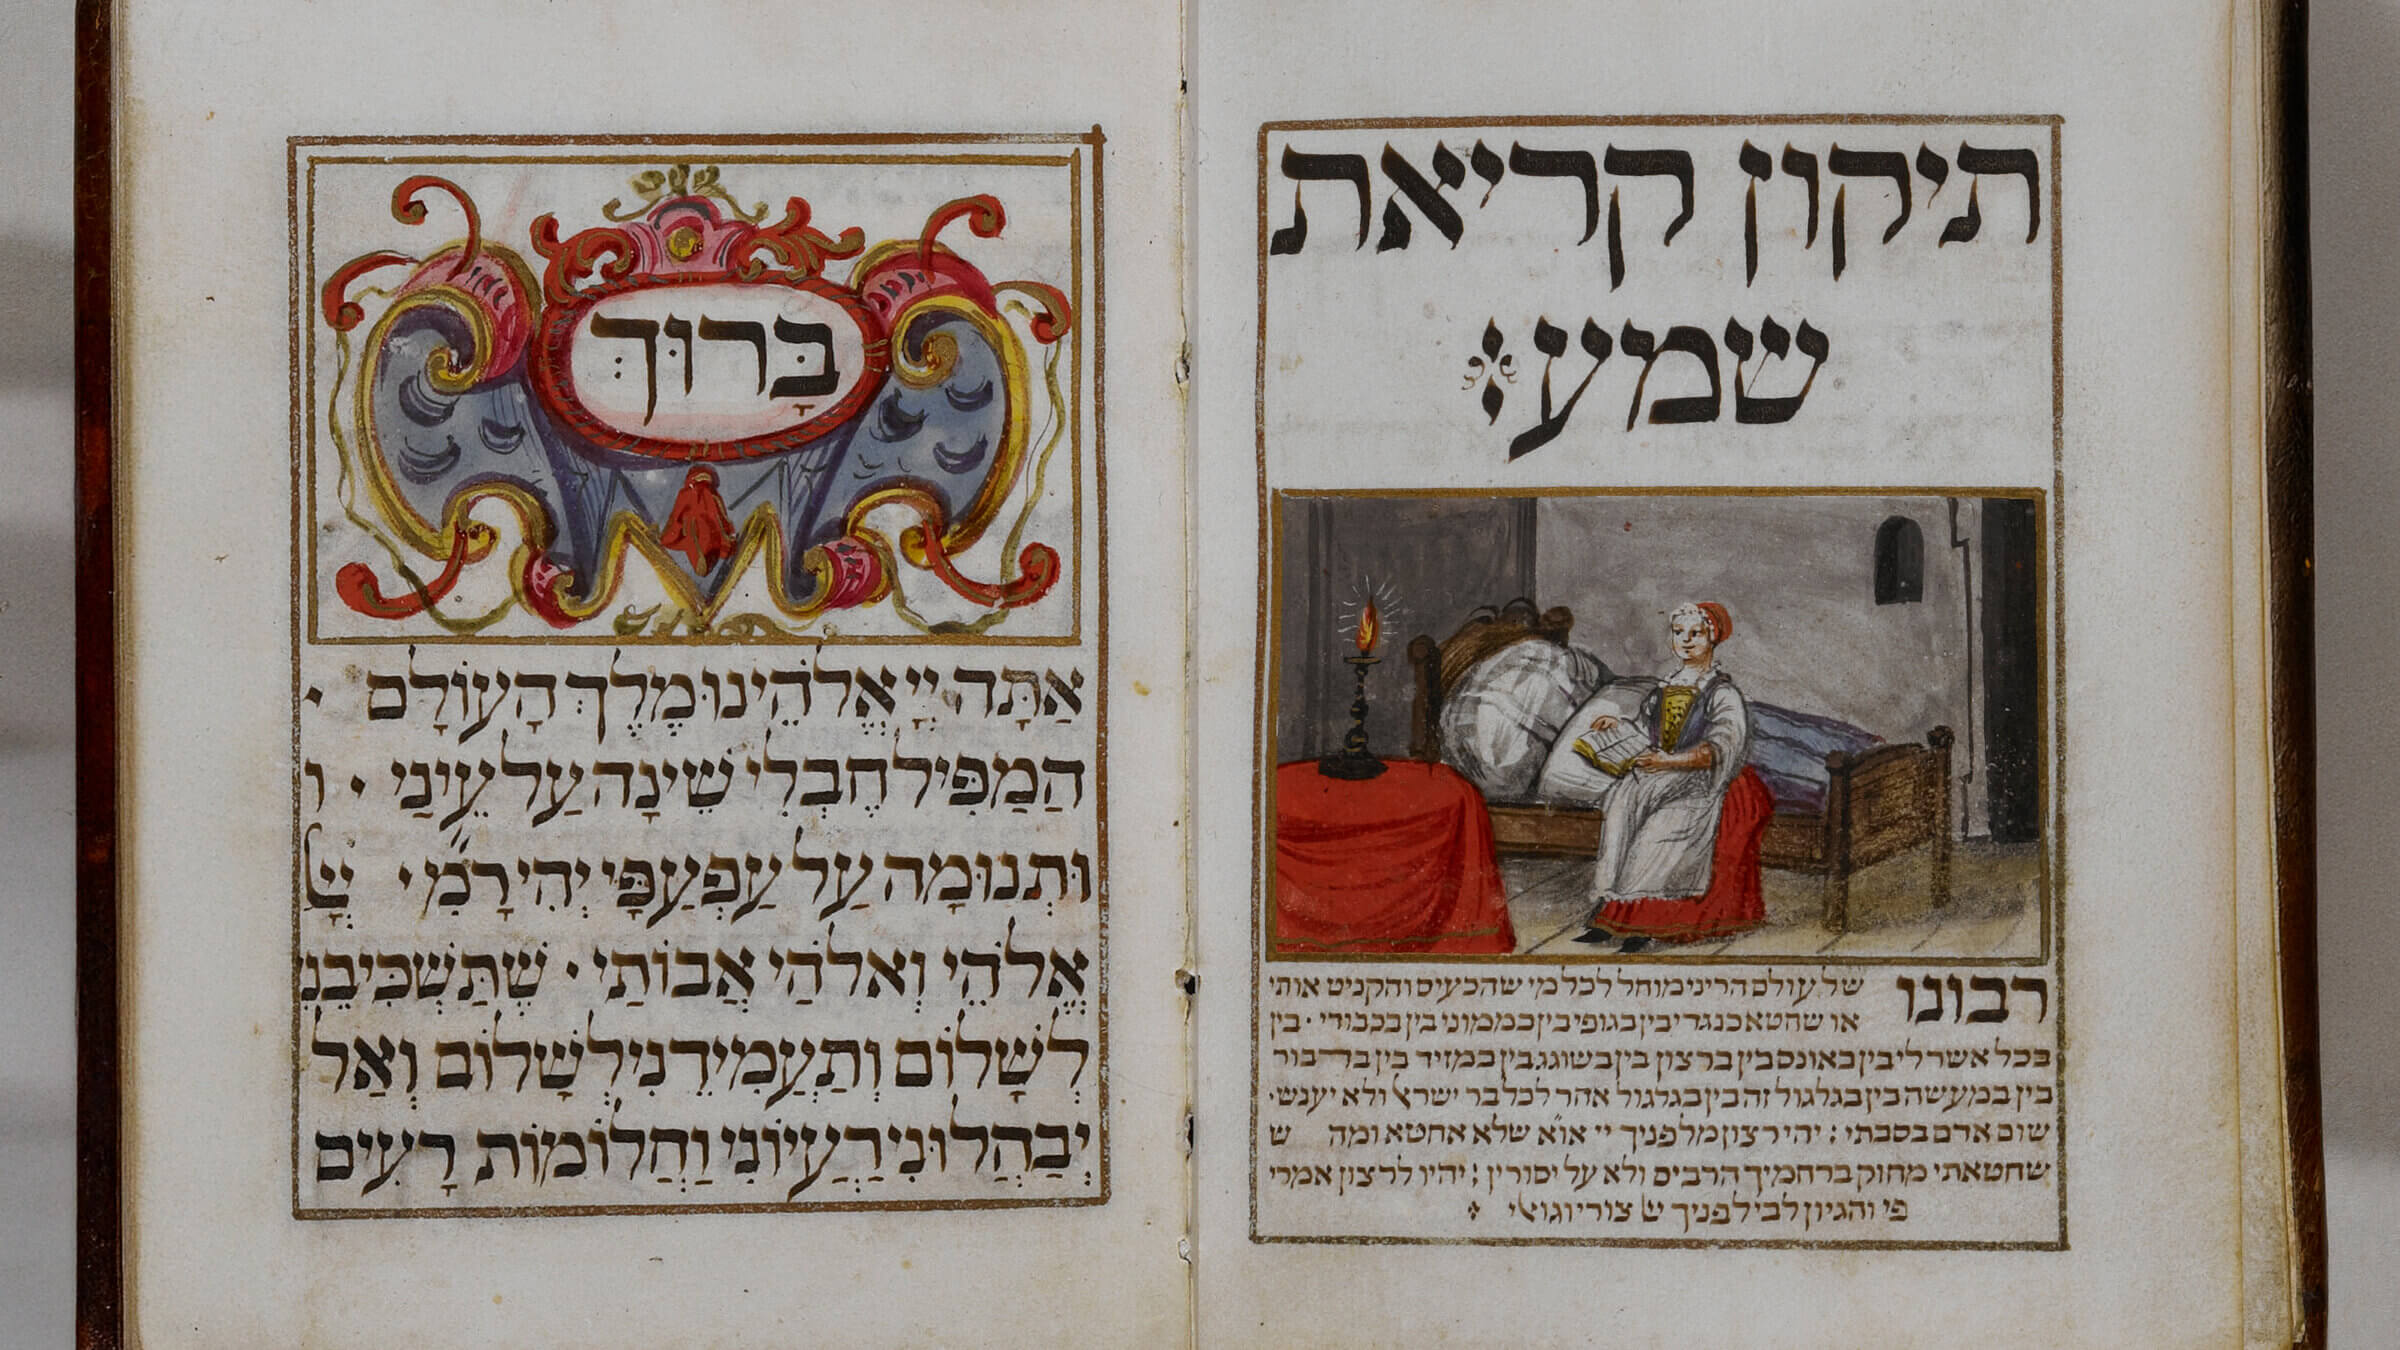 תיקון קריאת
שמע
רבונו של עולם הריני מוחל לכל מי שהכעיס והקניט אותי
או שחטא כנגדי בין בגופי בין בממוני בין בכבודי · בין
בכל אשר לי בין באונס בין ברצון בין בשוגג בין במזיד בין בדבור
בין במעשה בין בגלגול זה בין בגלגול אחר לכל בר ישראל ולא יענש·
שום אדם בסבתי : יהי רצון מלפניך יי או״א שלא אחטא ומה ש
שחטאתי מחוק ברחמיך הרבים ולא על יסורין : יהיו לרצון אמרי
פי והגיון לבי לפניך יי צורי וגואלי
בָּרוּךְ
אַתָּה יְיָ אֱלֹהֵינוּ מֶלֶךְ הָעוֹלָם ·
הַמַפִּיל חֶבְלֵי שֵׁינָה עַל עֵינַי · ו
וּתְנוּמָה עַל עַפְעַפָּי יְהִי רָמִ״י · שֶ
אֱלֹהֵי וְאלֹהַי אֲבוֹתַי · שֶׁתַּשְׁכִּיבֵנִי
לְשָׁלוֹם וְתַעֲמִידֵנִי לְשָׁלוֹם וְאַל
יְבַהֲלוּנִי רַעֲיוֹנִי וַחֲלוֹמוֹת רָעִים